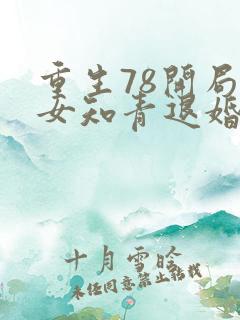 重生78开局
女知青退婚
十月雪晗
未经同意禁止转载